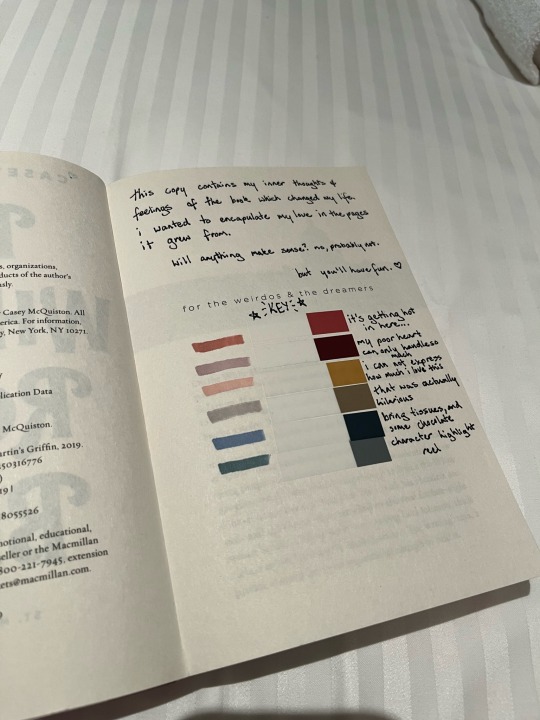 , organizations,
ducts of the author's
sly.
Casey McQuiston. All
erica. For information,
y, New York, NY 10271.
y
lication Data
McQuiston.
artin's Griffin, 2019.
50316776
)
191
8055526
otional, educational,
eller or the Macmillan
800-221-7945, extension
ets@macmillan.com.
9
this copy contains my inner thoughts &
feelings of the book which changed my life.
i wanted to encapulate my love in the pages
it grew from.
will anything make sense? no, probably not.
but you'll have fun. ♡
for the weirdos & the dreamers
☆ KEY: ☆
it's getting hot
in here....
my poor heart
can only handle so
much
i can not express
how much i love this
that was actually
hilarious
bring tissues, and
some chocolate
character highlight
reel